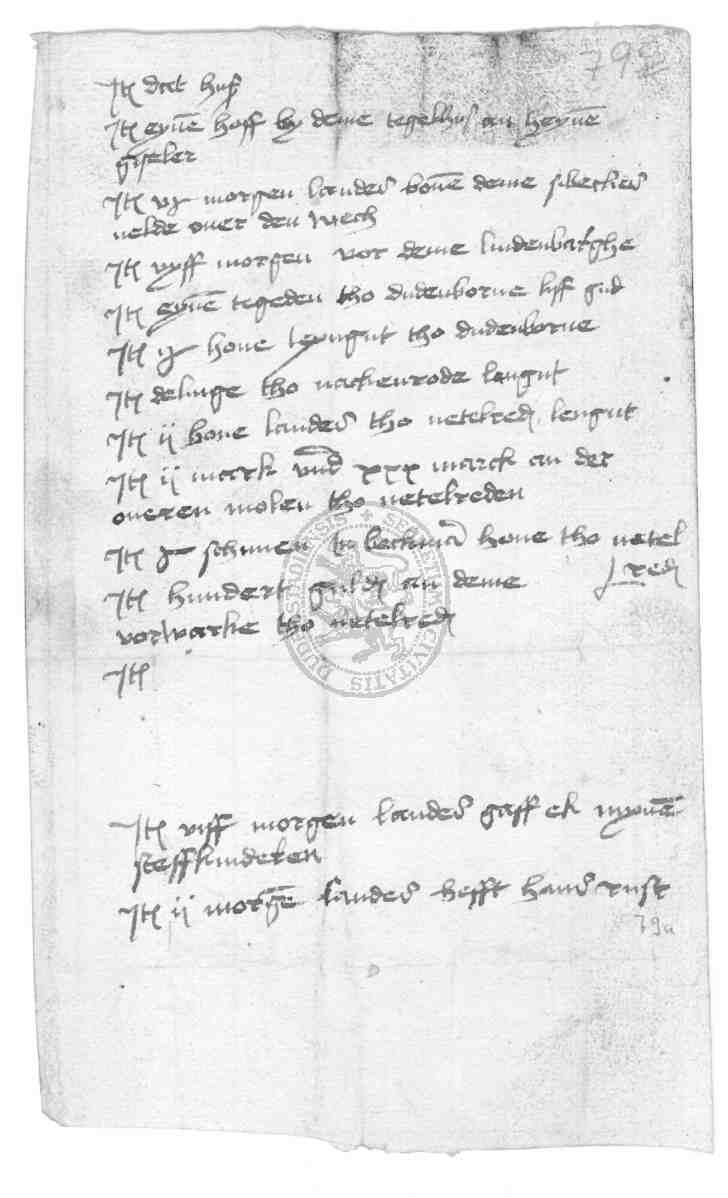 799
Itē dat huß
Itē eynē hoff by deme tegelhuß an heynē
gyseler
Itē vj morgen landes bouē deme sulbecker
velde ouer den wech
Itē vyff morgen vor deme lindenbarghe
Itē eynē tegeden tho dudenborne lyff gud
Itē ij houe leyngut tho dudenborne
Itē delinge tho nackenrode lengut
Itē ij houe landes tho netelred lengut
Itē ij mark vnd xxx marck an der
oueren molen tho netelreden
Itē j schunen houe tho netel
red
Itē hundert guld an deme
vorwarke tho netelred
Itē
Itē viff morgen landes gaff ek mynē
steffkinderen
Itē ij morgē landes hefft hans rust
79u
SECRETUM CIVITATIS DUDERSTADENSIS